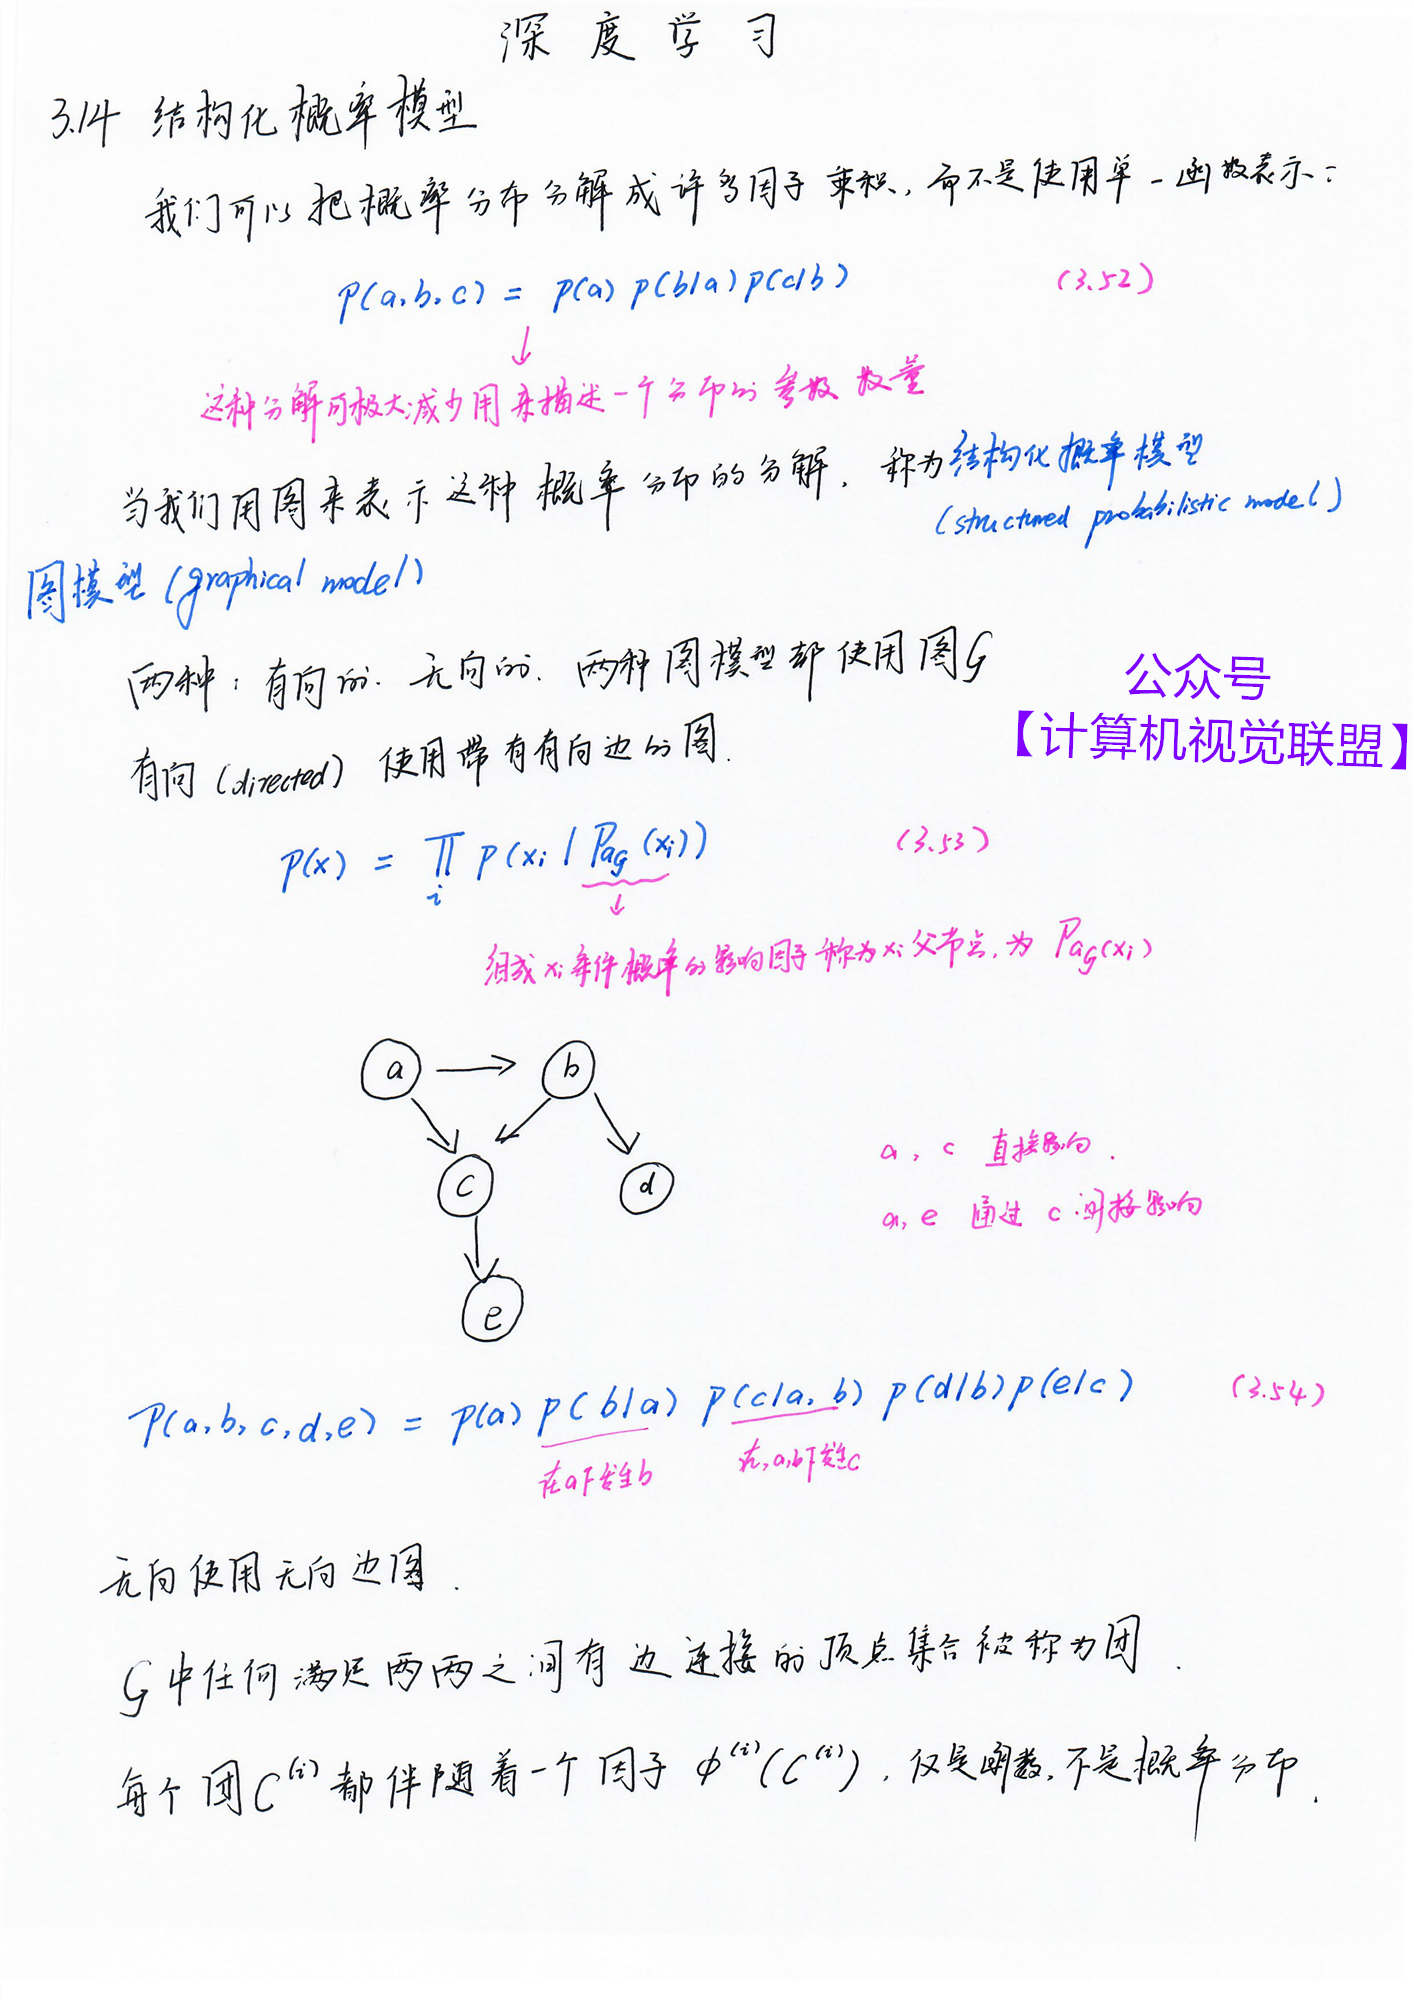 深度学习
3.14 结构化概率模型
我们可以把概率分布分解成许多因子乘积,而不是使用单一函数表示:
p(a,b,c) = p(a) p(b|a) p(c|b) (3.52)
↓
这种分解可极大减少用来描述一个分布的参数数量
当我们用图来表示这种概率分布的分解,称为结构化概率模型
(structured probabilistic model)
图模型 (graphical model)
两种:有向的.无向的.两种图模型都使用图G
公众号
【计算机视觉联盟】
有向 (directed) 使用带有有向边的图.
p(x) = ∏ p(xi | PaG(xi)) (3.53)
i
↓
组成xi条件概率的影响因子称为xi父节点,为 PaG(xi)
a → b
c d
e
a, c 直接影响.
a, e 通过 c 间接影响
P(a,b,c,d,e) = p(a) p(b|a) p(c|a,b) p(d|b) p(e|c) (3.54)
在a下发生b 在,a,b下发生c
无向使用无向边图.
G中任何满足两两之间有边连接的顶点集合被称为团.
每个团C⁽ⁱ⁾都伴随着一个因子 φ⁽ⁱ⁾(C⁽ⁱ⁾),仅是函数,不是概率分布.